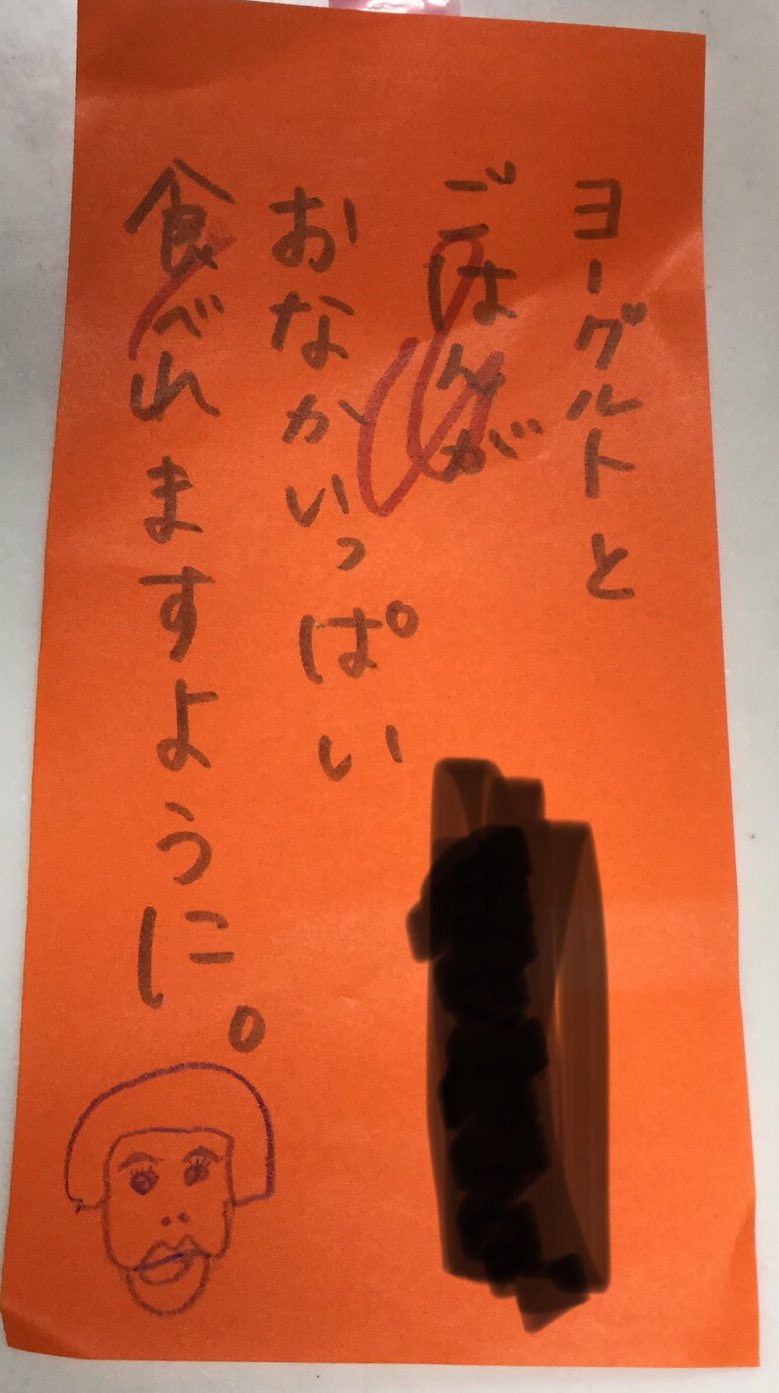 ヨーグルトと
ごはんが
おなかいっぱい
食べれますように。